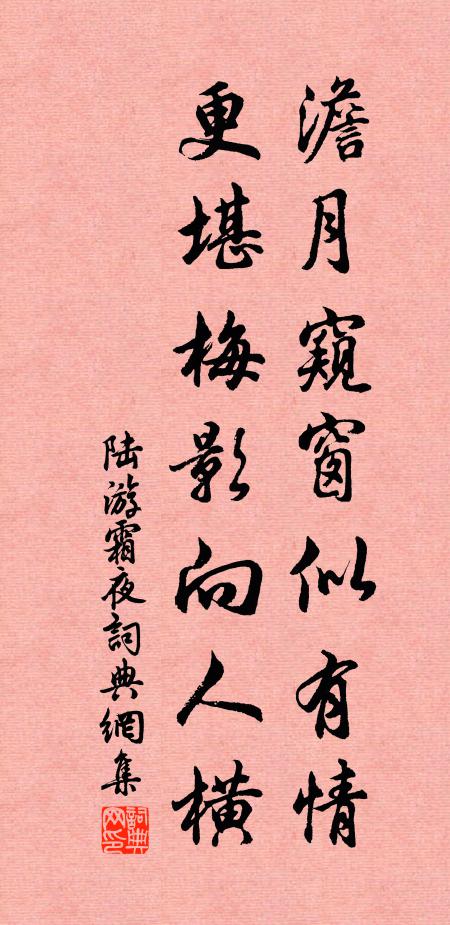 澹月窺窗似有情
更堪梅影向人橫
陆游霜夜詞典網集
詞典网印